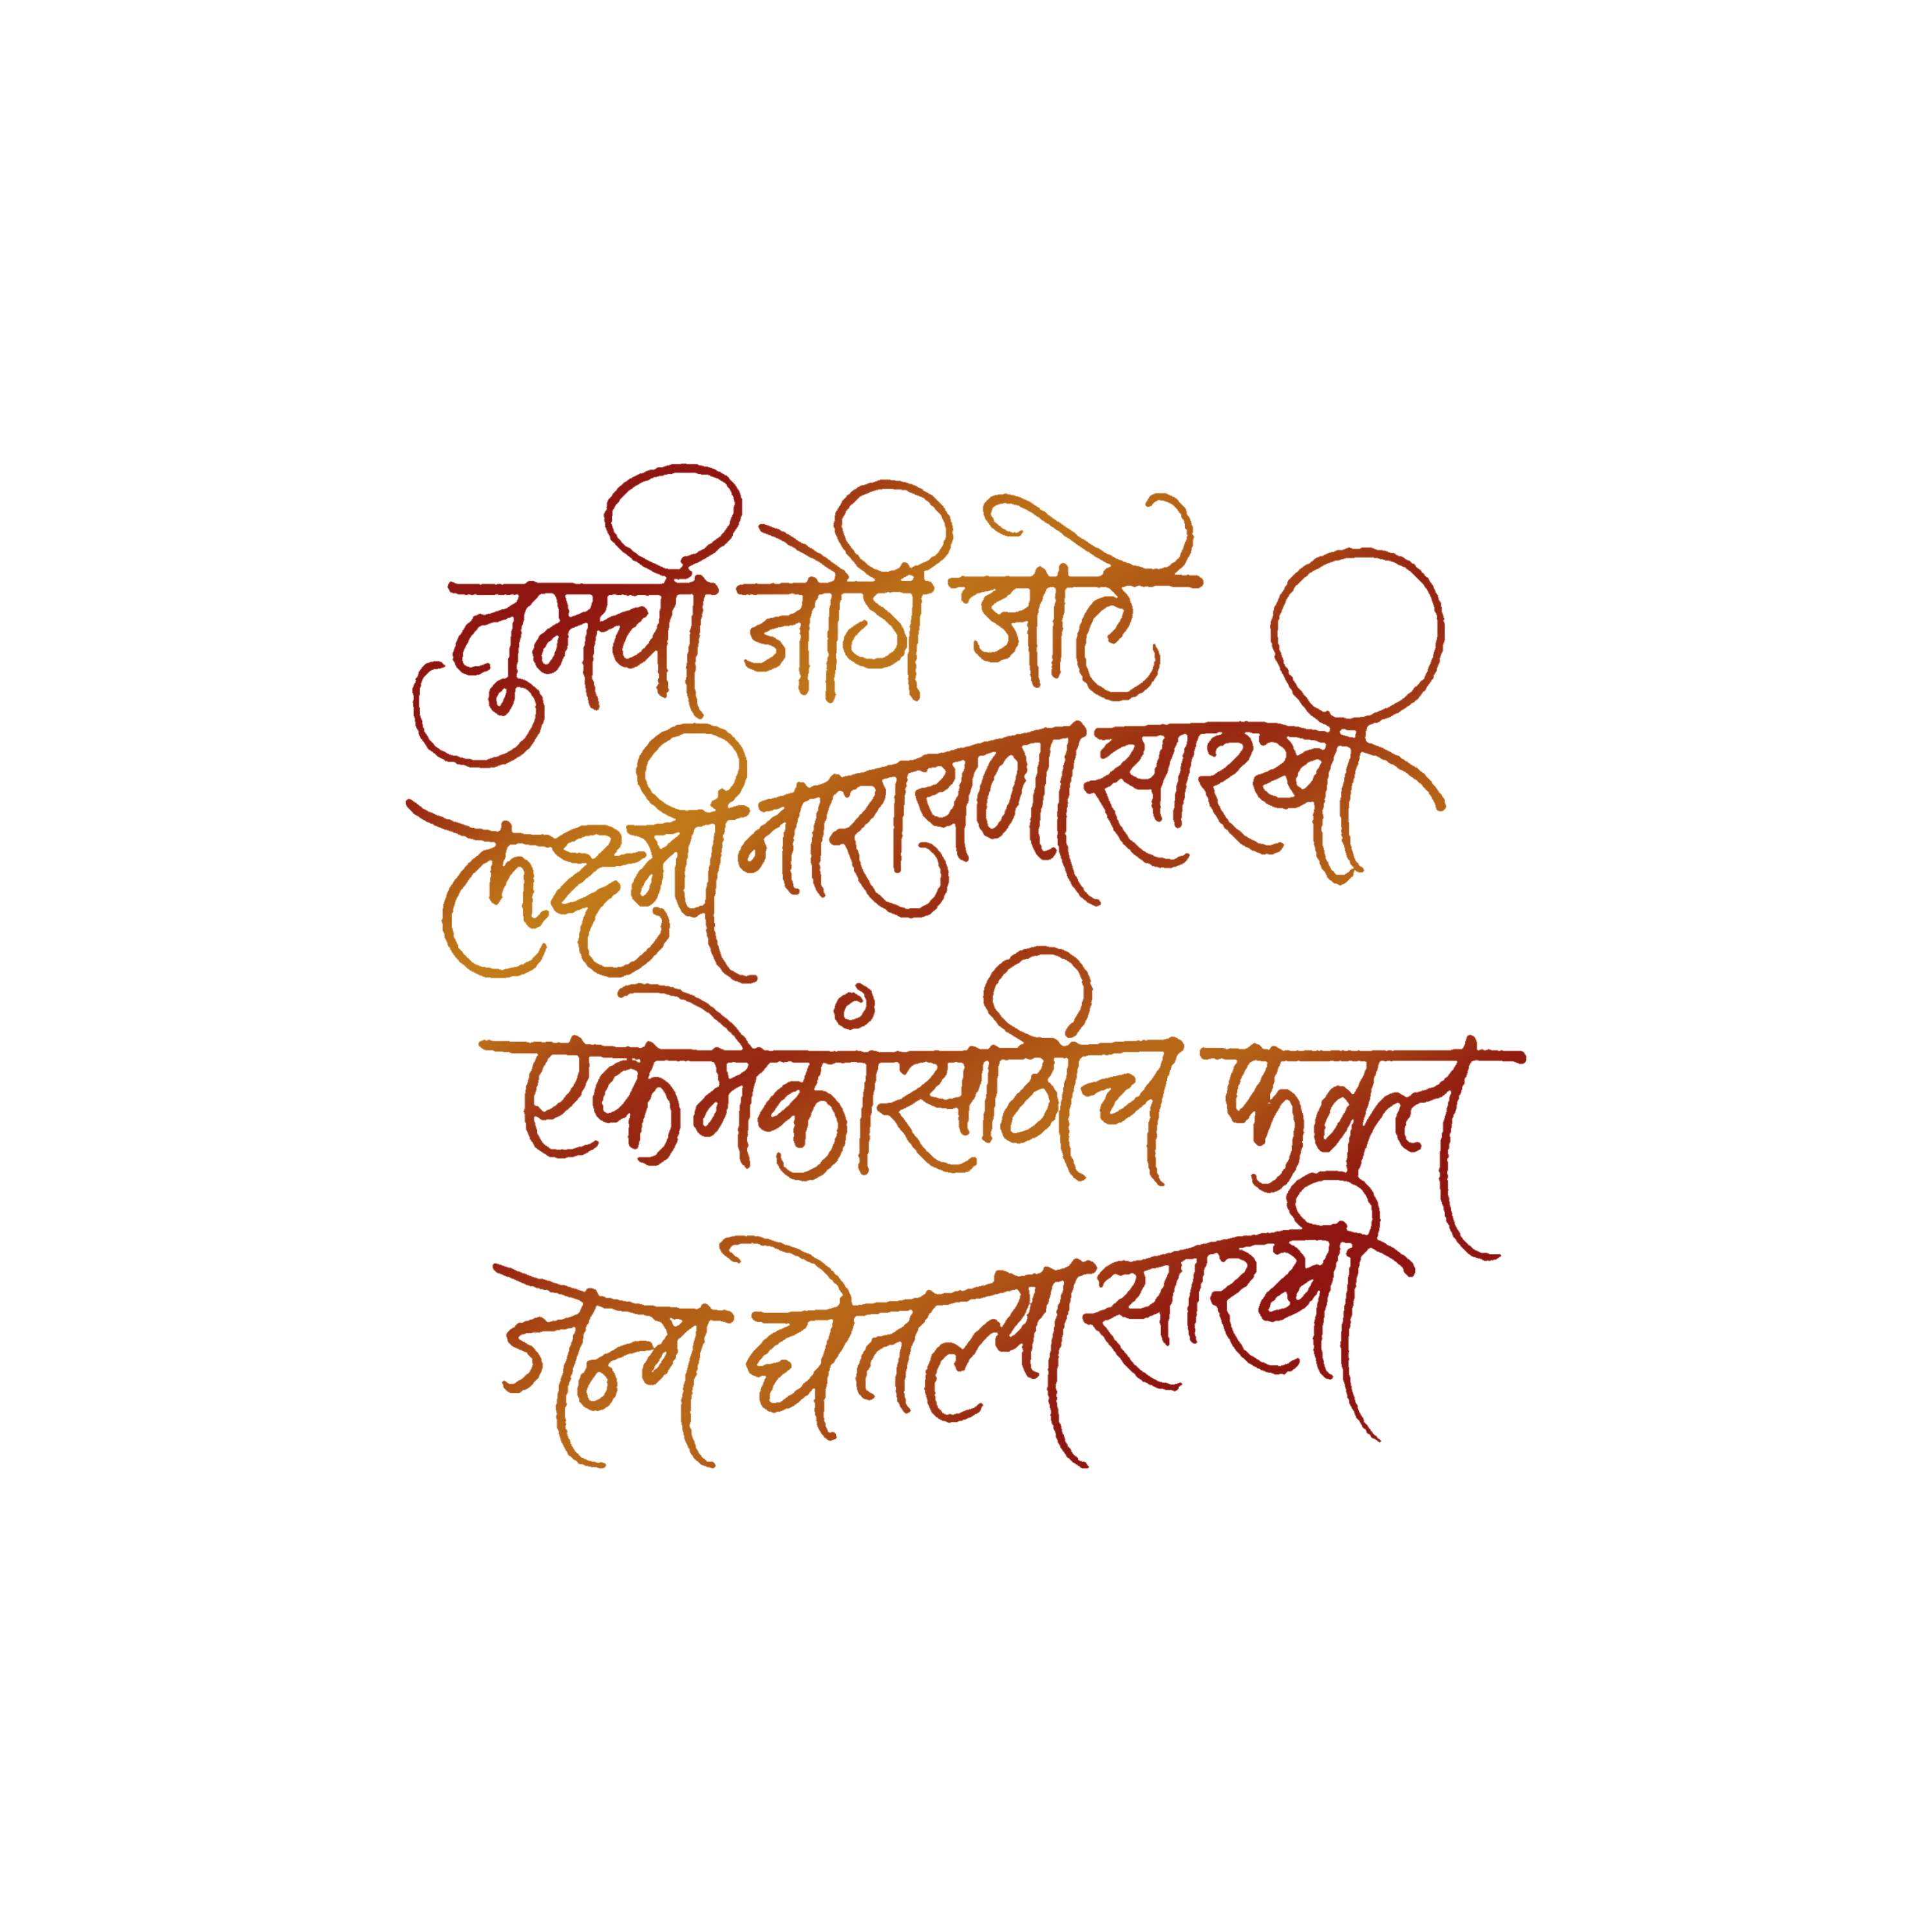 तुमची जोडी आहे
लक्ष्मी नारायणा सारखी
एकमेकांसाठीच फक्त
जन्म घेतल्या सारखी